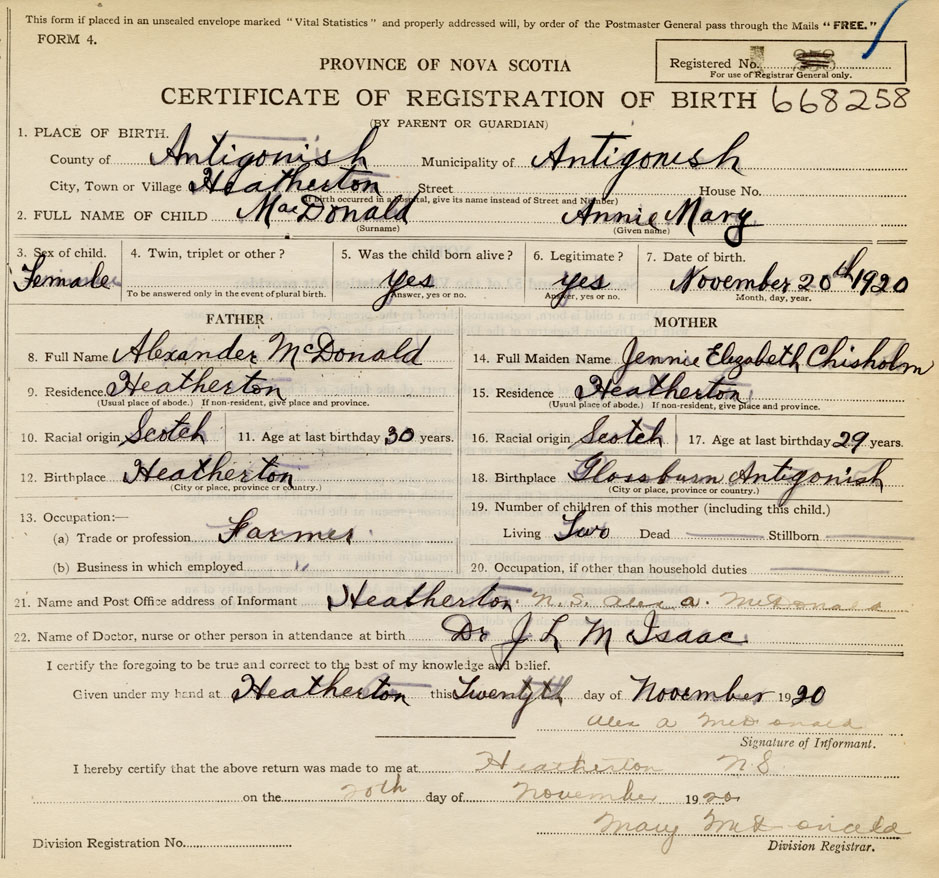 This form if placed in an unsealed envelope marked "Vital Statistics" and properly addressed will, by order of the Postmaster General pass through the Mails "FREE."
FORM 4.
Registered No.
For use of Registrar General only.
PROVINCE OF NOVA SCOTIA
CERTIFICATE OF REGISTRATION OF BIRTH 668258
(BY PARENT OR GUARDIAN)
1. PLACE OF BIRTH.
County of Antigonish Municipality of Antigonish
City, Town or Village Heatherton Street House No.
(If birth occurred in a hospital, give its name instead of Street and Number)
2. FULL NAME OF CHILD MacDonald Annie Mary
(Surname) (Given name)
3. Sex of child. 4. Twin, triplet or other? 5. Was the child born alive? 6. Legitimate? 7. Date of birth.
Female yes yes November 20th 1920
To be answered only in the event of plural birth. Answer, yes or no. Answer, yes or no. Month, day, year.
FATHER MOTHER
8. Full Name Alexander McDonald 14. Full Maiden Name Jennie Elizabeth Chisholm
9. Residence Heatherton 15. Residence Heatherton
(Usual place of abode.) If non-resident, give place and province. (Usual place of abode.) If non-resident, give place and province.
10. Racial origin Scotch 11. Age at last birthday 30 years. 16. Racial origin Scotch 17. Age at last birthday 29 years.
12. Birthplace Heatherton 18. Birthplace Glassburn Antigonish
(City or place, province or country.) (City or place, province or country.)
13. Occupation:— 19. Number of children of this mother (including this child.)
(a) Trade or profession Farmer Living Two Dead Stillborn
(b) Business in which employed 20. Occupation, if other than household duties
21. Name and Post Office address of Informant Heatherton N.S. Alex a. McDonald
22. Name of Doctor, nurse or other person in attendance at birth Dr J L M Isaac
I certify the foregoing to be true and correct to the best of my knowledge and belief.
Given under my hand at Heatherton this Twentyth day of November 1920
Alex a McDonald
Signature of Informant.
I hereby certify that the above return was made to me at Heatherton N S
on the 20th day of November 1920
Mary McDonald
Division Registration No. Division Registrar.